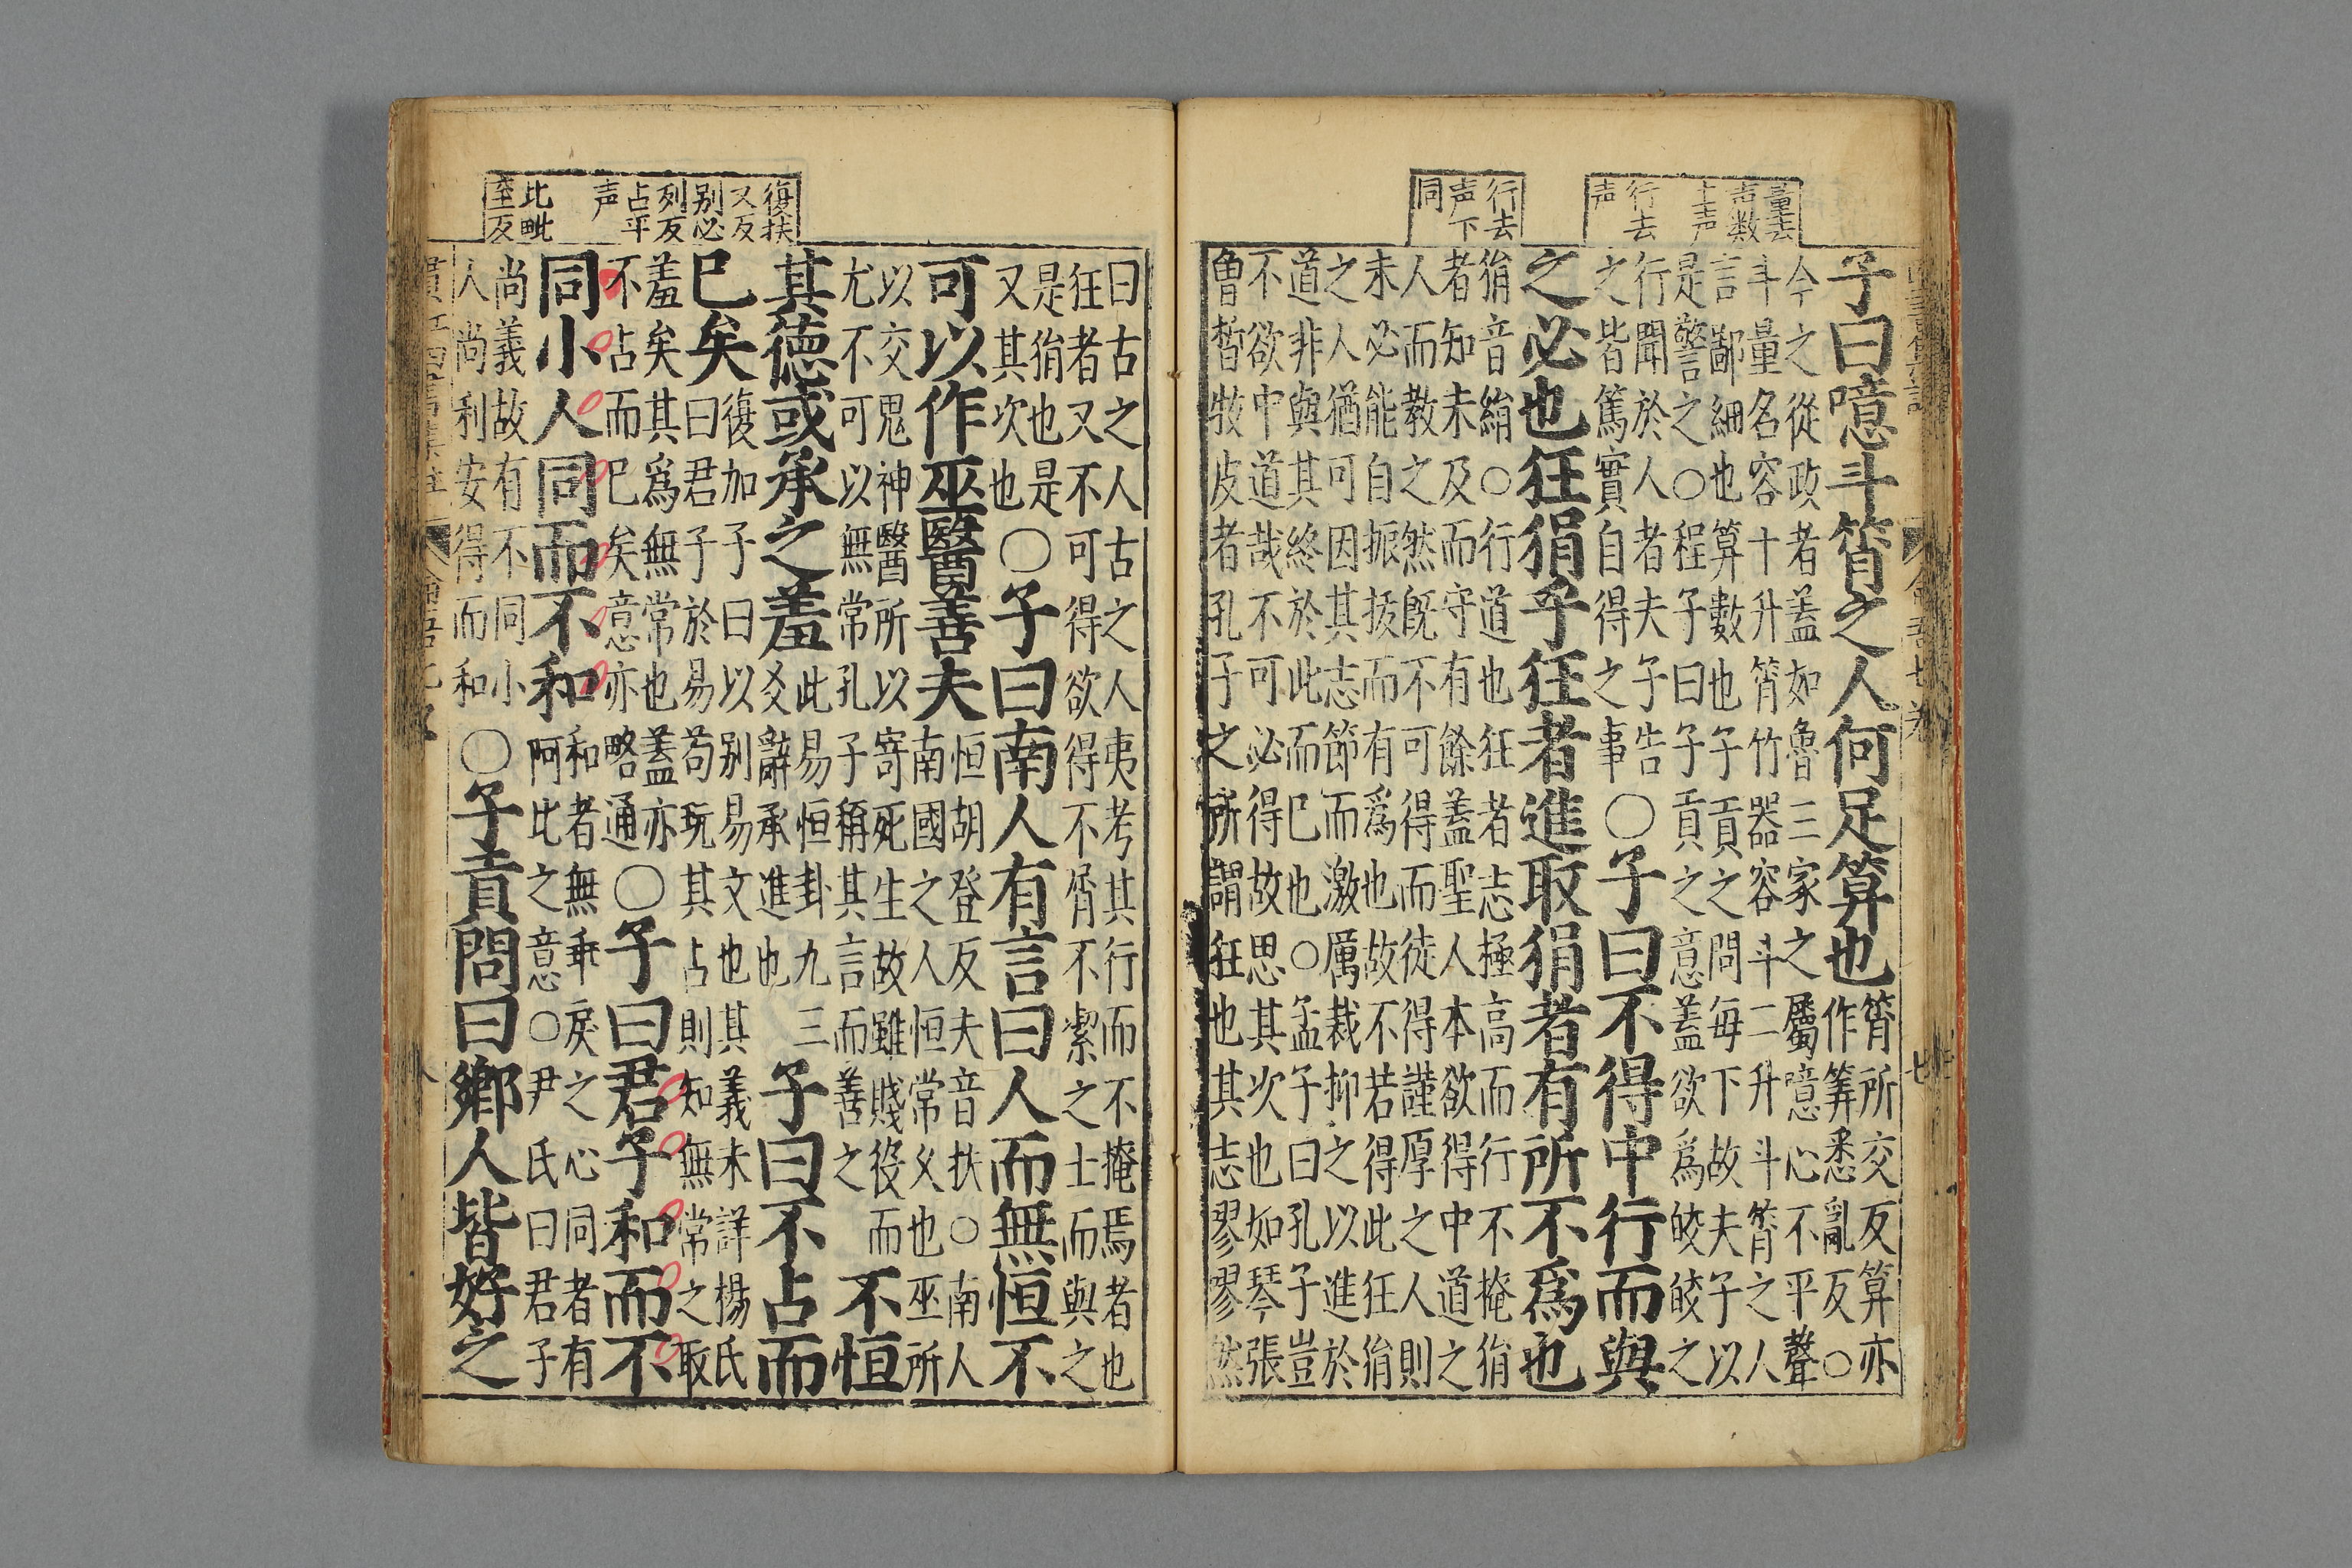 量去
声数
上声
行去
声
行去
声下
同
子曰噫斗筲之人何足算也
筲所交反算亦
作筭悉亂反○
今之從政者蓋如魯三家之屬噫心不平聲
斗量名容十升筲竹器容斗二升斗筲之人
言鄙細也算數也子貢之問每下故夫子以
是警之○程子曰子貢之意蓋欲爲皎皎之
行聞於人者夫子告
之皆篤實自得之事
○子曰不得中行而與
之必也狂狷乎狂者進取狷者有所不爲也
狷音絹○行道也狂者志極高而行不掩狷
者知未及而守有餘蓋聖人本欲得中道之
人而教之然既不可得而徒得謹厚之人則
未必能自振拔而有爲也故不若得此狂狷
之人猶可因其志節而激厲裁抑之以進於
道非與其終於此而已也○孟子曰孔子豈
不欲中道哉不可必得故思其次也如琴張
曾晳牧皮者孔子之所謂狂也其志嘐嘐然
復扶
又反
别必
列反
占平
声
比毗
至反
曰古之人古之人夷考其行而不掩焉者也
狂者又不可得欲得不屑不潔之士而與之
是狷也是
又其次也
○子曰南人有言曰人而無恒不
可以作巫醫善夫
恒胡登反夫音扶○南人
南國之人恒常久也巫所
以交鬼神醫所以寄死生故雖賤役而
尤不可以無常孔子稱其言而善之
不恒
其德或承之羞
此易恒卦九三
爻辭承進也
子曰不占而
已矣
復加子曰以别易文也其義未詳楊氏
曰君子於易苟玩其占則知無常之取
羞矣其爲無常也蓋亦
不占而已矣意亦略通
○子曰君子和而不
同小人同而不和
和者無乖戾之心同者有
阿比之意○尹氏曰君子
尚義故有不同小
人尚利安得而和
○子貢問曰鄉人皆好之